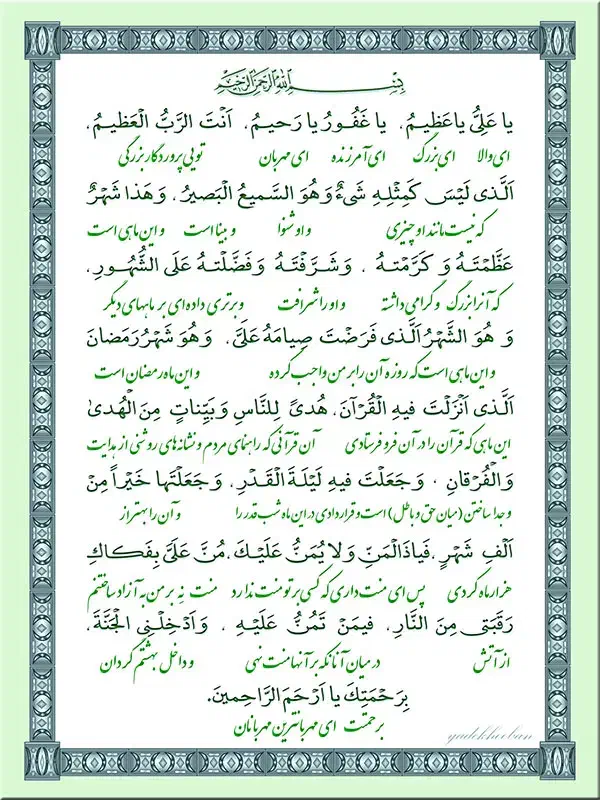 بِسْمِ اللهِ الرَّحْمنِ الرَّحيمِ
يا عَلِيُّ يا عَظيمُ، يا غَفُورُ يا رَحيمُ، اَنْتَ الرَّبُّ الْعَظيمُ،
ای والا ای بزرگ ای آمرزنده ای مهربان تویی پروردگار بزرگی
اَلَّذى لَيْسَ كَمِثْلِهِ شَىْءٌ وَ هُوَ السَّميعُ الْبَصيرُ، وَ هَذا شَهْرٌ
که نیست مانند او چیزی و او شنوا و بینا است و این ماهی است
عَظَّمْتَهُ وَ كَرَّمْتَهُ ، وَ شَرَّفْتَهُ وَ فَضَّلْتَهُ عَلَى الشُّهُورِ،
که آنرا بزرگ و گرامی داشته و او را شرافت و برتری داده ای بر ماههای دیگر
وَ هُوَ الشَّهْرُ الَّذى فَرَضْتَ صِيامَهُ عَلَىَّ، وَ هُوَ شَهْرُ رَمَضانَ
و این ماهی است که روزه آن را بر من واجب کرده و این ماه رمضان است
اَلَّذى اَنْزَلْتَ فيهِ الْقُرْآنَ، هُدىً لِلنَّاسِ وَ بَيِّناتٍ مِنَ الْهُدىٰ
این ماهی که قرآن را در آن فرو فرستادی آن قرآنی که راهنمای مردم و نشانه های روشنی از هدایت
وَالْفُرْقانِ ، وَ جَعَلْتَ فيهِ لَيْلَةَ الْقَدْرِ، وَ جَعَلْتَها خَيْراً مِنْ
و جدا ساختن (میان حق و باطل) است و قرار دادی در این ماه شب قدر را و آن را بهتر از
اَلْفِ شَهْرٍ، فَيا ذَالْمَنِّ وَ لا يُمَنُّ عَلَيْكَ، مُنَّ عَلَىَّ بِفَكاكِ
هزار ماه کردی پس ای منت داری که کسی بر تو منت ندارد منت نِه بر من به آزاد ساختنم
رَقَبَتى مِنَ النَّارِ، فيمَنْ تَمُنُّ عَلَيْهِ ، وَ اَدْخِلْنِى الْجَنَّةَ،
از آتش در میان آنانکه بر آنها منت نهی و داخل بهشتم گردان
بِرَحْمَتِكَ يا اَرْحَمَ الرَّاحِمينَ.
برحمتت ای مهربانترین مهربانان
yadekhooban